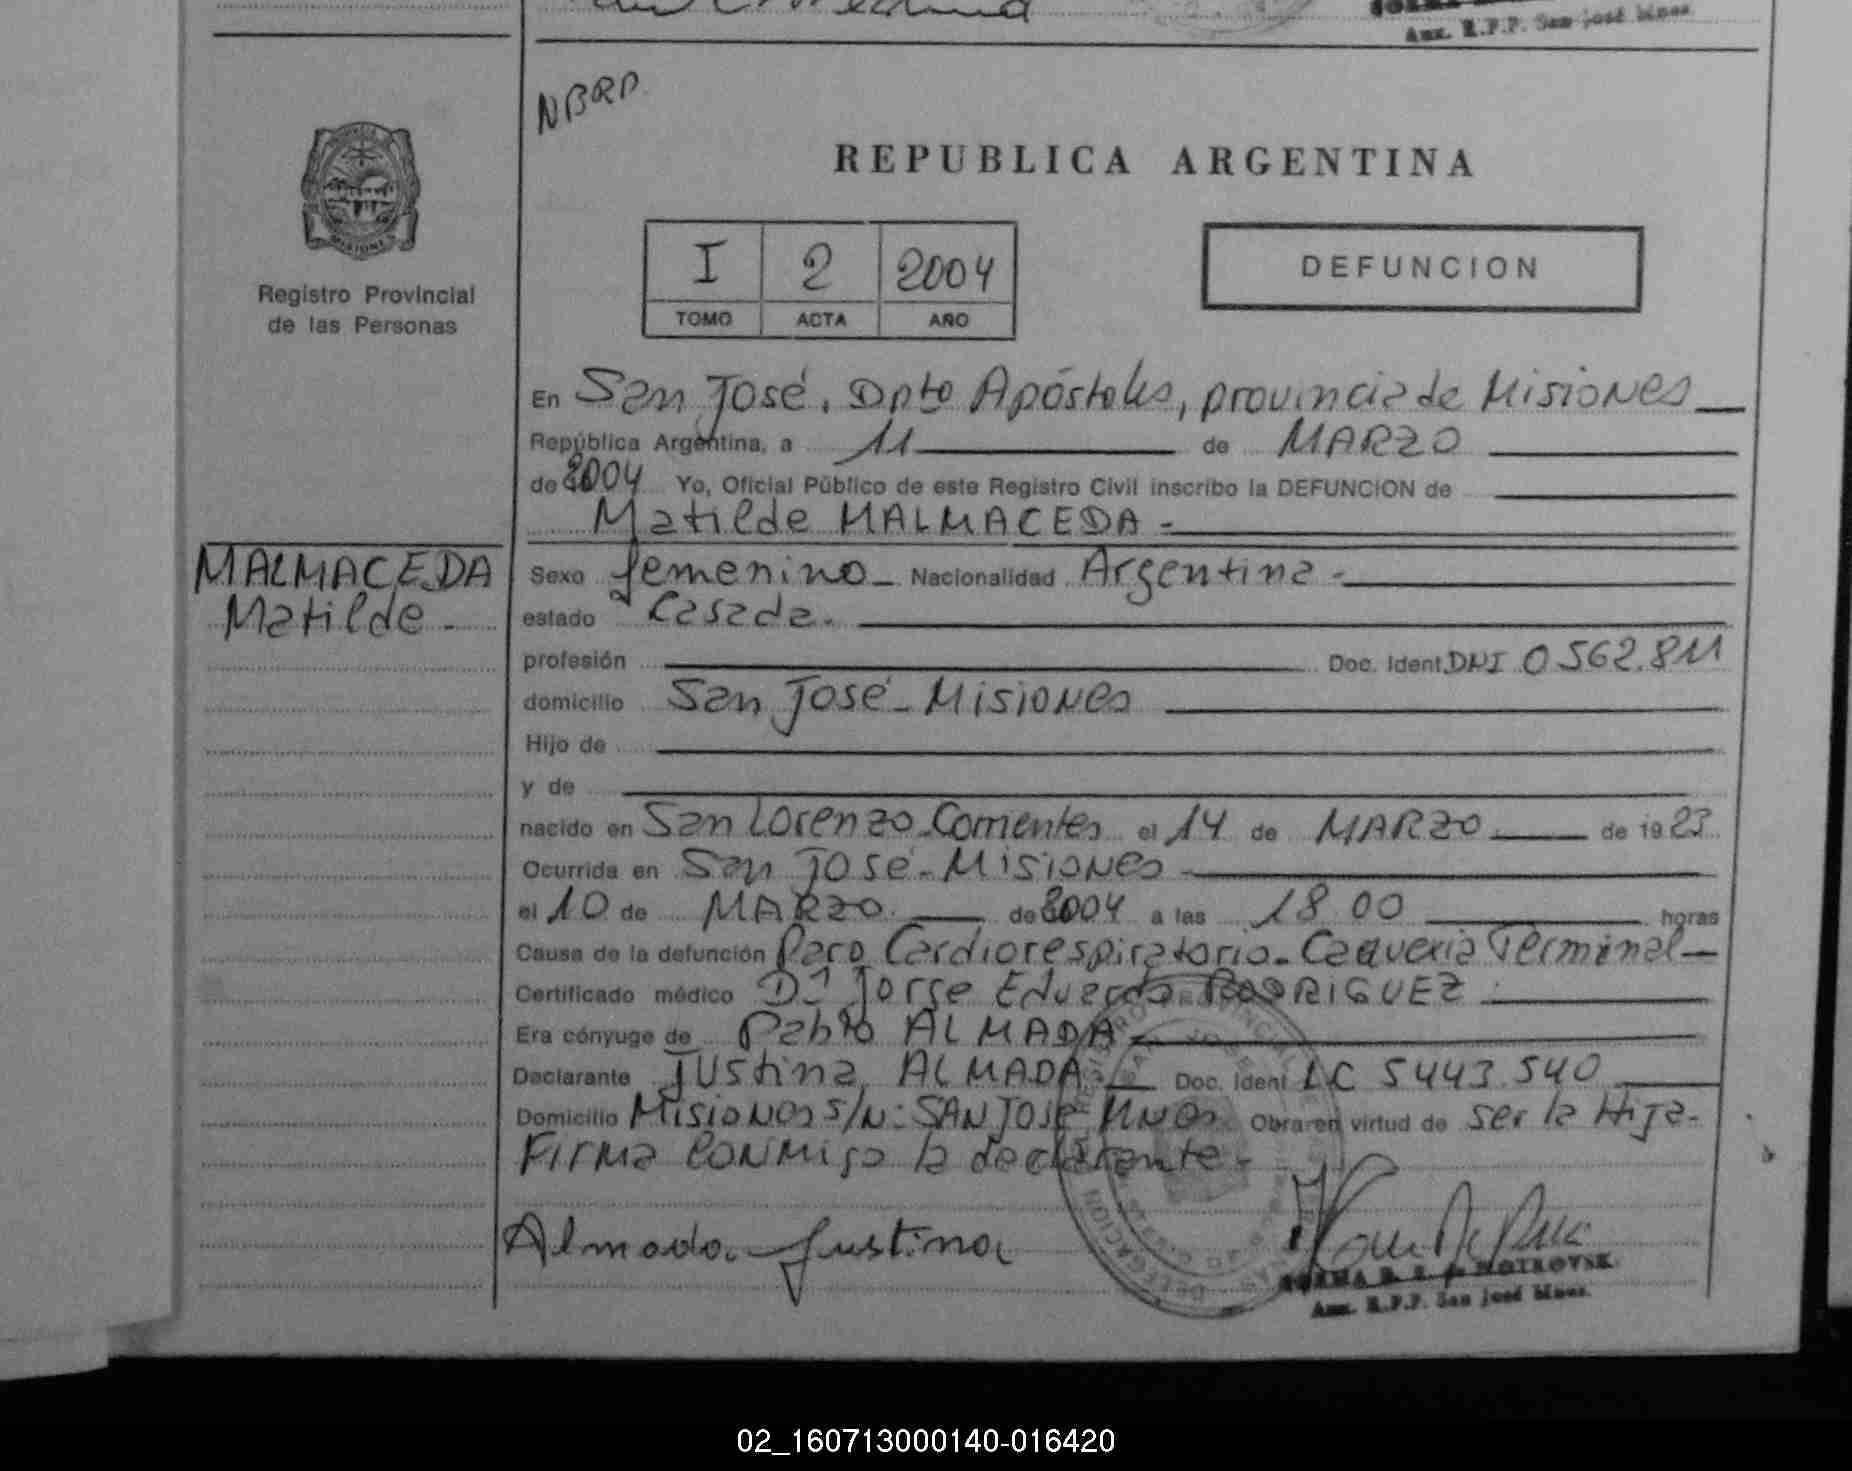 Aux. R.P.P. San José Mnes.
NBRD
REPUBLICA ARGENTINA
I 2 2004
TOMO ACTA AÑO
DEFUNCION
Registro Provincial
de las Personas
En San José, Dpto Apóstoles, provincia de Misiones
República Argentina, a 11 de MARZO
de 2004 Yo, Oficial Público de este Registro Civil inscribo la DEFUNCION de
Matilde MALMACEDA -
MALMACEDA
Matilde -
Sexo femenino - Nacionalidad Argentina -
estado Casada.
profesión Doc. Ident. DNI 0562.811
domicilio San José - Misiones
Hijo de
y de
nacido en San Lorenzo - Corrientes el 14 de MARZO de 1923
Ocurrida en San José - Misiones
el 10 de MARZO de 2004 a las 18 00 horas
Causa de la defunción Paro Cardiorespiratorio - Caquexia Terminal -
Certificado médico Dr Jorge Eduardo RODRIGUEZ
Era cónyuge de Pablo ALMADA -
Declarante Justina ALMADA Doc. Ident LC 5443.540
Domicilio Misiones s/N: SAN JOSE Mnes Obra en virtud de ser la Hija -
Firma conmigo la declarante -
Almada Justina
Aux. R.P.P. San José Mnes.
02_160713000140-016420